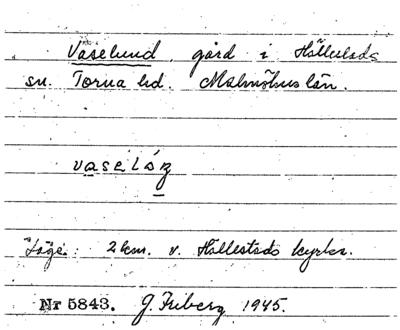 Vaselund, gård i Hällestads
sn. Torna hd. Malmöhus län.
Läge: 2 km. v. Hällestads kyrka.
Nr 5843. J. Friberg 1945.